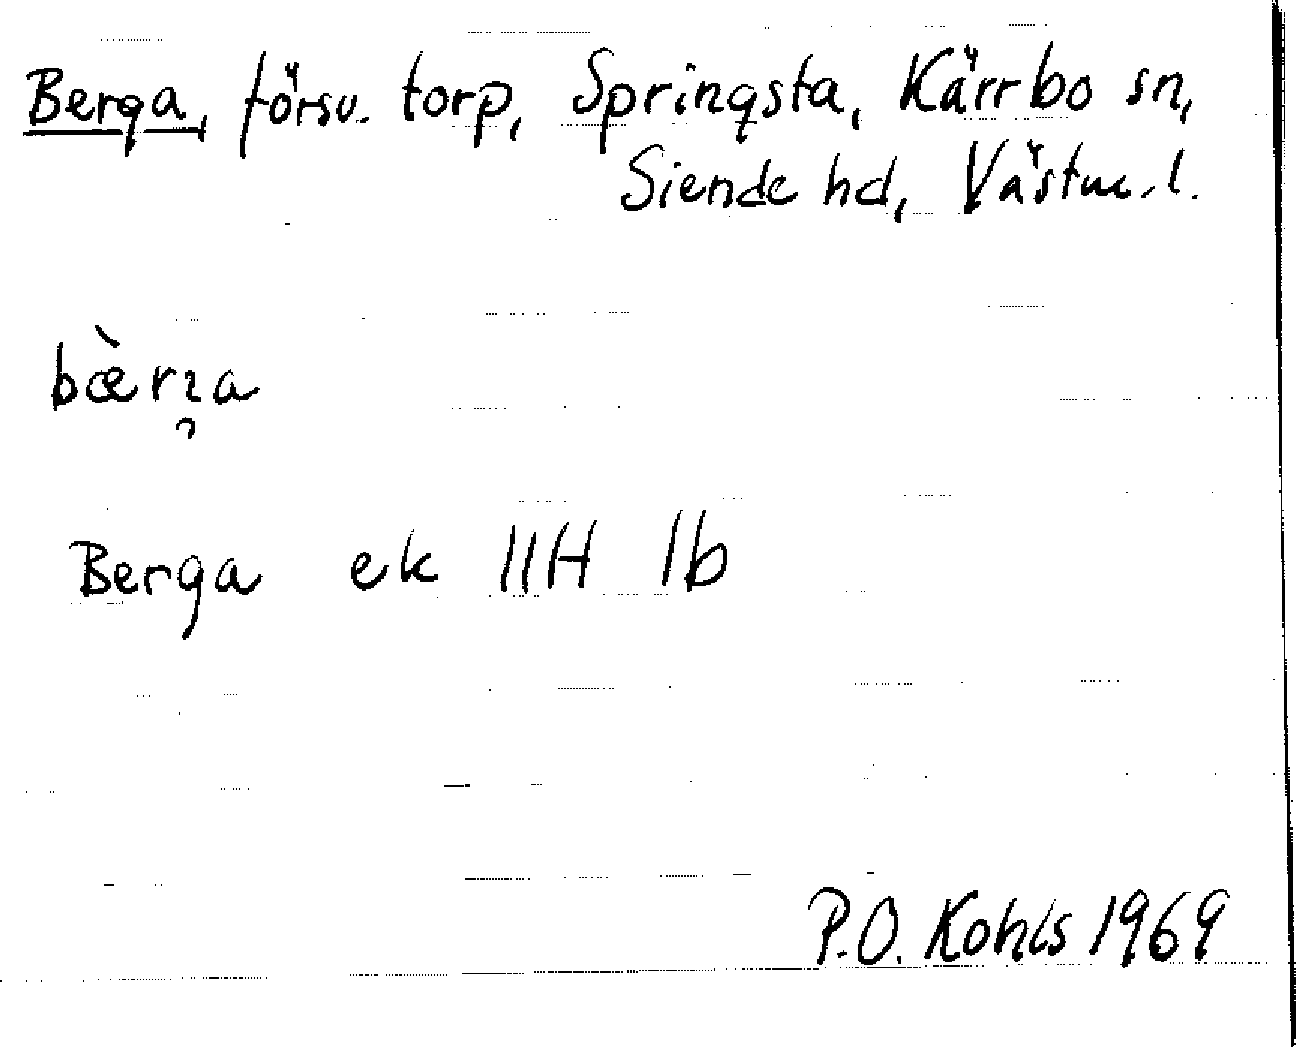 Berga, försv. torp, Springsta, Kärrbo sn,
Siende hd, Västm. l.
bæ̀rɿa
Berga ek 11H 1b
P.O. Kohls 1969